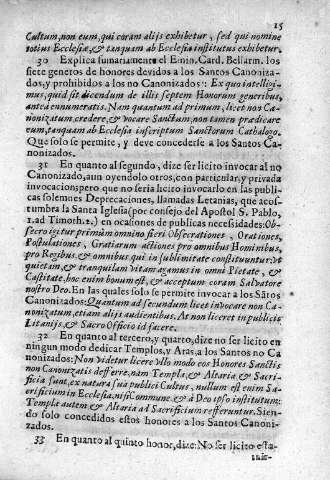 15
Cultum, non eum, qui coram alijs exhibetur, sed qui nomine
totius Ecclesiæ, & tanquam ab Ecclesia institutus exhibetur.
30 Explica sumariamente el Emin. Card. Bellarm. los
siete generos de honores devidos a los Santos Canoniza-
dos, y prohibidos a los no Canonizados: Ex quo intelligi-
mus, quid sit dicendum de illis septem Honorum generibus,
antea enumeratis. Nam quantum ad primum, licet non Ca-
nonizatum, credere, & vocare Sanctum, non tamen prædicare
eum, tanquam ab Ecclesia inscriptum Sanctorum Cathalogo.
Que solo se permite, y deve concederse a los Santos Ca-
nonizados.
31 En quanto al segundo, dize ser licito invocar al no
Canonizado, aun oyendolo otros, con particular, y privada
invocacion, pero que no seria licito invocarlo en las publi-
cas solemnes Deprecaciones, llamadas Letanias, que acos-
tumbra la Santa Iglesia (por consejo del Apostol S. Pablo,
1. ad Timoth. 2.) en ocasiones de publicas necesidades: Ob-
secro igitur primum omnino fieri Obsecrationes, Orationes,
Postulationes, Gratiarum actiones pro omnibus Hominibus,
pro Regibus, & omnibus qui in sublimitate constituuntur: Vt
quietam, & tranquilam vitam agamus in omni Pietate, &
Castitate, hoc enim bonum est, & acceptum coram Salvatore
nostro Deo. En las quales solo se permite invocar a los Sãtos
Canonizados: Quantum ad secundum licet invocare non Ca-
nonizatum, etiam alijs audientibus. At non liceret in publicis
Litanijs, & Sacro Officio id facere.
32 En quanto al tercero, y quarto, dize no ser licito en
ningun modo dedicar Templos, y Aras, a los Santos no Ca-
nonizados: Non videtur licere vllo modo eos Honores Sanctis
non Canonizatis defferre, nam Templa, & Altaria & Sacri-
ficia sunt, ex natura sua publici Cultus, nullum est enim Sa-
crificium in Ecclesia, nisi Commune, & à Deo ipso institutum:
Templa autem & Altaria ad Sacrificium refferuntur. Sien-
do solo concedidos estos honores a los Santos Canoni-
zados.
33 En quanto al quinto honor, dize: No ser licito esta-
tuir-